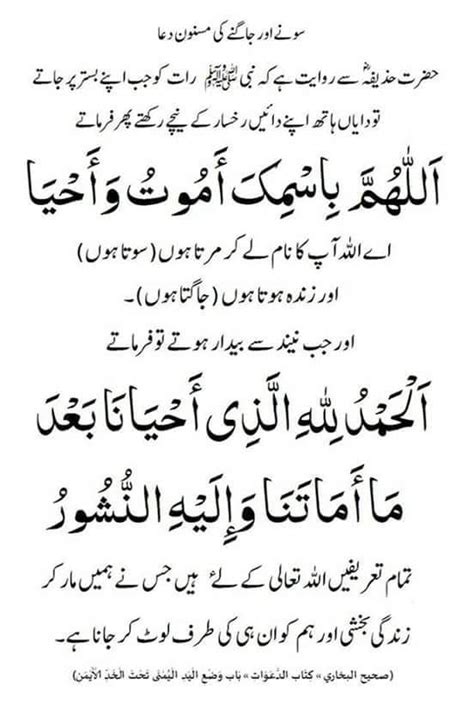 سونے اور جاگنے کی مسنون دعا
حضرت حذیفہؓ سے روایت ہے کہ نبی ﷺ رات کو جب اپنے بستر پر جاتے
تو دایاں ہاتھ اپنے دائیں رخسار کے نیچے رکھتے پھر فرماتے
اَللّٰهُمَّ بِاسْمِکَ أَمُوتُ وَأَحْیَا
اے اللہ آپ کا نام لے کر مرتا ہوں (سوتا ہوں)
اور زندہ ہوتا ہوں (جاگتا ہوں)۔
اور جب نیند سے بیدار ہوتے تو فرماتے
اَلْحَمْدُ لِلّٰهِ الَّذِی أَحْیَانَا بَعْدَ
مَا أَمَاتَنَا وَإِلَیْهِ النُّشُورُ
تمام تعریفیں اللہ تعالی کے لئے ہیں جس نے ہمیں مار کر
زندگی بخشی اور ہم کو ان ہی کی طرف لوٹ کر جانا ہے۔
(صحیح البخاری » کتاب الدَّعَوَات » بَاب وَضْعِ الْیَدِ الْیُمْنَی تَحْتَ الْخَدِّ الْأَیْمَنِ)